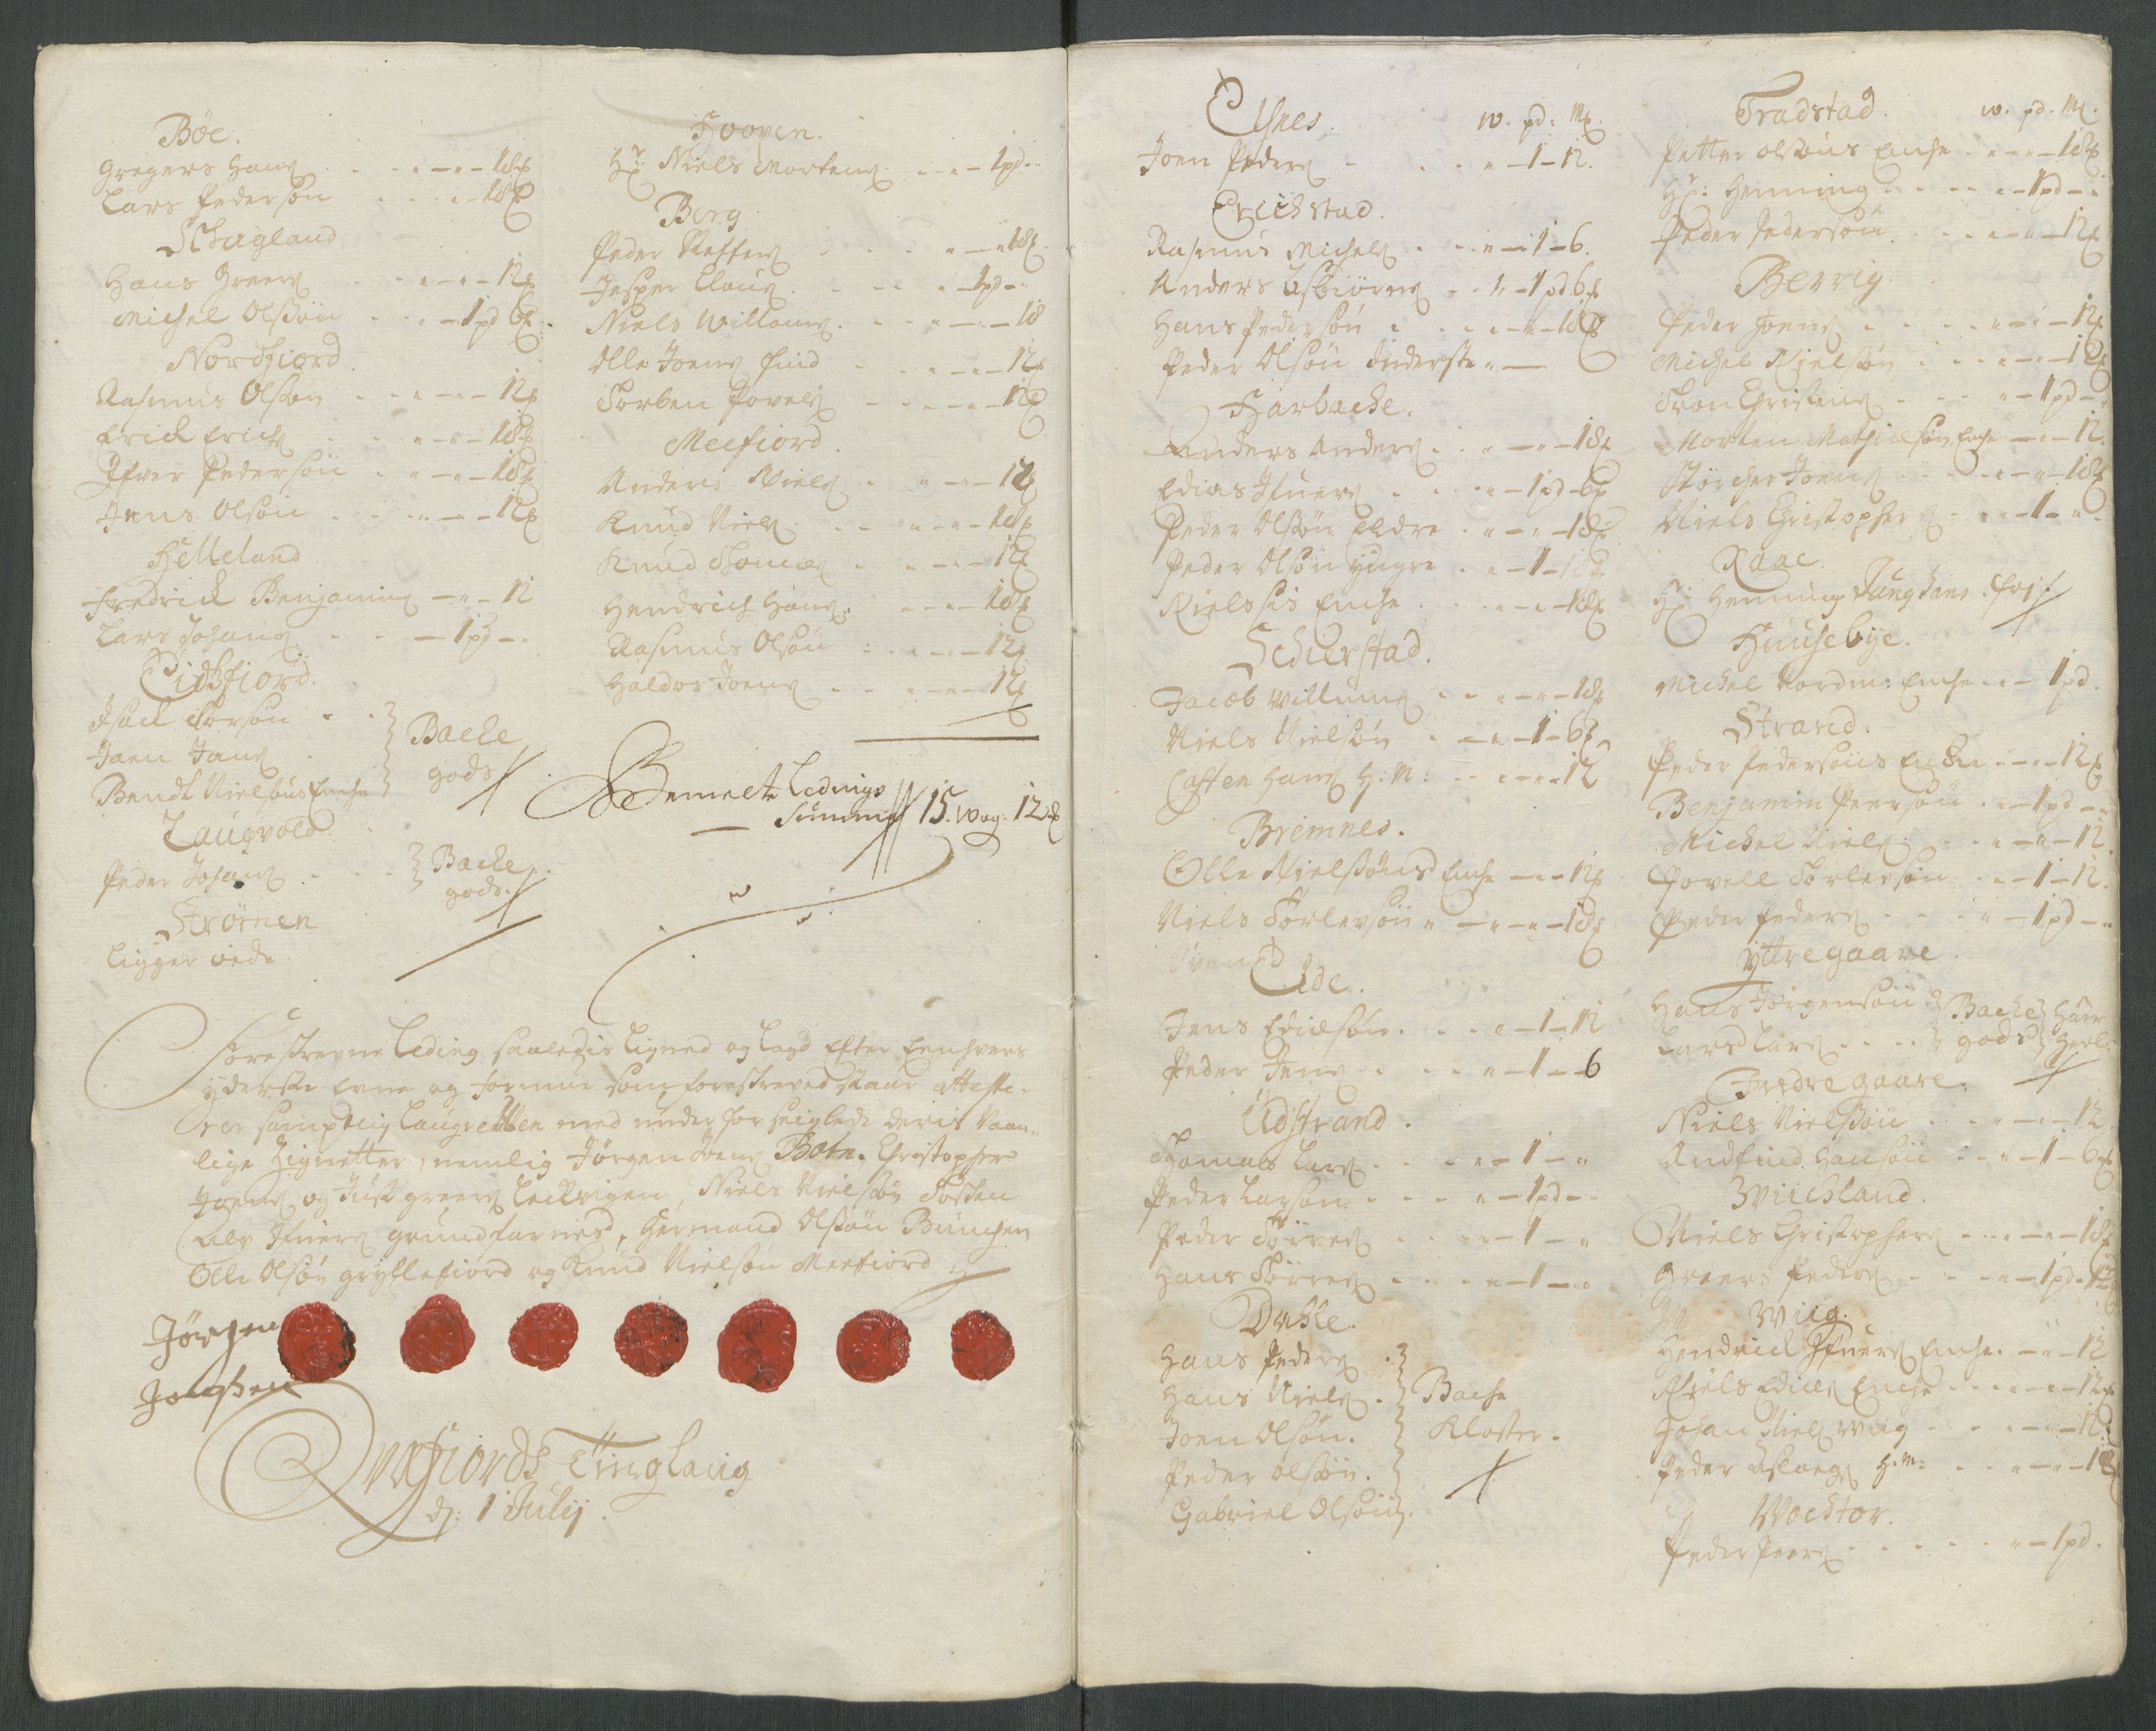 Böe.
Gregers Hans . . . " — " — 18 ℔
Lars Pedersøn . . . . 18 ℔
Schagland
Hans Greers . . " — " — 12 ℔
Michel Olsøn . . " — 1 pd 6 ℔
Nordfiord
Rasmus Olsøn . . " — " — 12 ℔
Erich Erichs . . " — " — 18 ℔
Ifver Pedersøn . " — " — 18 ℔
Jens Olsøn . . . " — " — 12 ℔
Helleland
Fredrich Benjamins — " — 12
Lars Johans . . — 1 pd — "
Eidsfiord.
Isach Torsøn . .
Joen Jans .
Bendt Nielsøns Enche
Bache
gods
Laugvold
Peder Johans . . .
Bache
gods
Strömen
Ligger øede
Hooven.
Hr: Niels Mortens . . " — 1 pd "
Berg
Peder Steffens . . . " — " 18 ℔
Jesper Claus . . . " — 1 pd — "
Niels Willoms . . . " — " — 18
Olle Joens find . . . " — " — 12 ℔
Torben Povels . . " — " — 12 ℔
Meefiord.
Anders Niels . " — " — 12 ℔
Knud Niels . . . " — " — 18 ℔
Knud Thomes . . " — " — 12 ℔
Hendrich Hans . " — " — 18 ℔
Rasmus Olsøn . " — " — 12 ℔
Haldor Joens . . " — " — 12 ℔
Bemelte Ledings
Summa 15. Wog. 12 ℔
Foreskrevne Leding saaledis Ligned og Lagd Efter Eenhvers
yderste Evne og formue som foreskreved staar atteste-
rer samptlig Laugretten med under for seiglede deris Vaan-
lige Zignetter, nemlig Jörgen Joens Botn. Christopher
Joens og Just greers Leckvigen, Niels Nielsøn Tosken
Alv Ifuers grundfarnes, Hermand Olsøn Bunchen
Olle Olsøn gryllefiord og Knud Nielsøn Meefiord
Jörgen
Jonsen
Qvæfiords Tinglaug
d: 1 Julij.
Elsnes. w. pd. M℔.
Joen Peders . . . " — 1 — 12.
Erichstad.
Rasmus Michels . . " — 1 — 6.
Anders Esbiörns . . " — 1 pd 6 ℔
Hans Pedersøn . . . " — " — 18 ℔
Peder Olsøn Inderste " —
Harbache.
Anders Anders . . " — " — 18 ℔
Edias Ifuers . . . " — 1 pd — 6 ℔
Peder Olsøn Eldre . " — " — 18 ℔
Peder Olsøn yngre . " — 1 — 12 ℔
Nielsis Enche . . . " — " — 18 ℔
Scherstad.
Jacob Willums . . " — " — 18 ℔
Niels Nielsøn . — " — 1 — 6 ℔
Casten Hans H: M: . . " — " 12
Bremnes.
Olle Nielsøns Enche — " — 12 ℔
Niels Torlevsøn " — " — " — 18 ℔
Ede.
Jens Ediesøn . . . " — 1 — 12
Peder Jens . . . . " — 1 — 6
Udstrand.
Thomas Lars . . . " — 1 — "
Peder Larsøn . . . " — 1 pd — "
Peder Törres . . . " — 1 — "
Hans Törres . . . " — 1 — "
Dahle.
Hans Peders .
Hans Niels .
Joen Olsøn.
Peder Olsøn.
Gabriel Olsøn.
Bache
Kloster.
Tradstad. w. pd. M℔.
Petter Olsøns Enche . " — " — 18 ℔
Hr: Henning . . . . " — 1 pd — "
Peder Pedersøn . . . " — " — 12 ℔
Berrig.
Peder Joens . . . . " — " — 12 ℔
Michel Nielsøn . . " — " — 12 ℔
Tron Christens . . . " — 1 pd — "
Morten Mathiesøn Enche — " — 12.
Störcher Joens . . . " — " — 18 ℔
Niels Christophers . . " — 1 — "
Raae.
Hr: Henning Junghans. fri
Huusebye.
Michel Nordm: Enche . " — 1 pd.
Strand.
Peder Pedersøns Enche . . " — " 12 ℔
Benjamin Peersøn . . " — 1 pd — "
Michel Niels . . . " — " — 12.
Povell Torlevsøn . . " — 1 — 12.
Peder Peders . . . " — 1 pd — "
yttregaare.
Hans Jörgensøn
Lars Lars . . . .
Bache
gods
Harr
Indregaare.
Niels Nielsøn . . . " — " — 12.
Andfind Hansøn . . " — 1 — 6 ℔
Wiichland.
Niels Christophers . . " — " — 18 ℔
Greers Peders . . . " — 1 pd — 12
Wiig.
Hendrich Ifuers Enche. — " — 12
Niels Edies Enche . . . " — " — 12 ℔
Johan Niels wiig . . . " — " — 12.
Peder Aslags H: M: . . . " — " — 12
Wocktor.
Peder Peers . . . . . " — 1 pd.